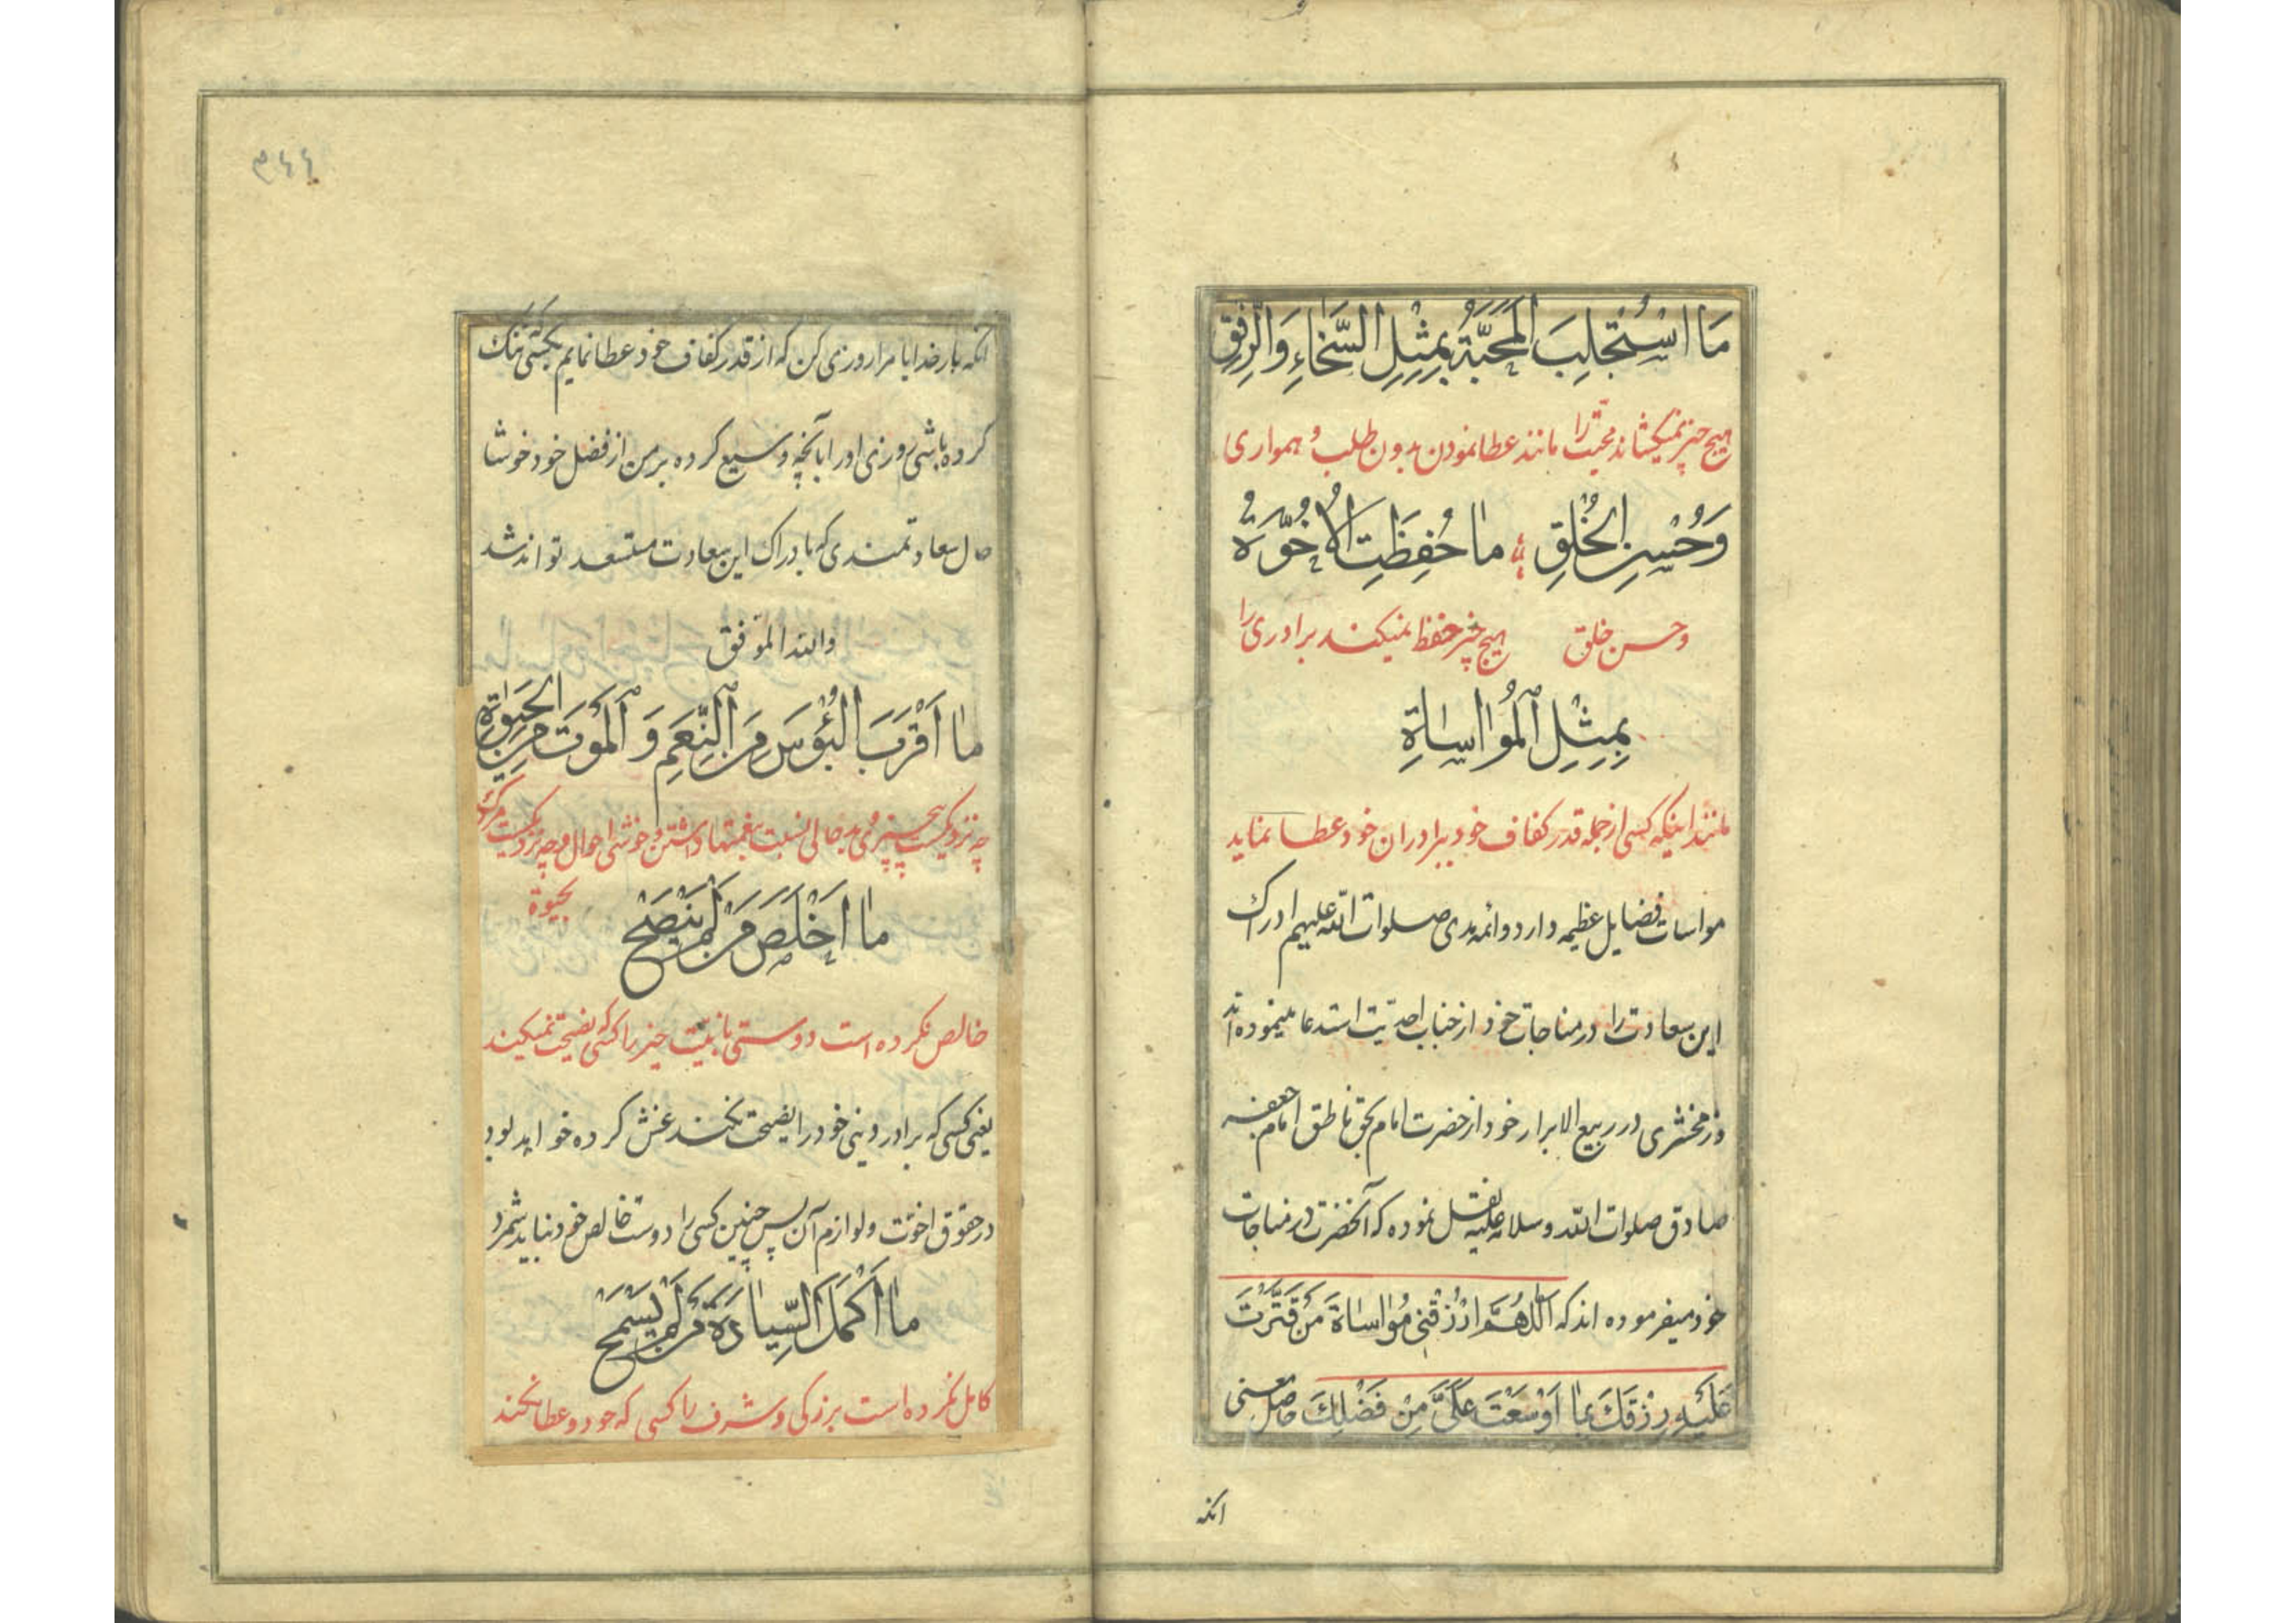 مَا اسْتُجْلِبَ الْمَحَبَّةُ بِمِثْلِ السَّخٰاءِ وَالرِّفِقِ
هیچ چیز نمیکشاند محبّت را مانند عطا نمودن بدون طلب و همواری
وَحُسْنِ الْخُلْقِ مٰا حُفِظَتِ الْاُخُوَّةُ
وحسن خلق هیچ چیز حفظ نمیکند برادری را
بِمِثْلِ الْمُوٰاسٰاةِ
مانند اینکه کسی از جمله قدر کفاف خود ببرادران خود عطا نماید
مواسات فضایل عظیمه دارد و ائمه هدی صلوات اللّه علیهم ادراک
این سعادت را در مناجات خود از جناب احدیّت استدعا مینموده اند
و زمخشری در ربیع الابرار خود از حضرت امام بحق ناطق امام جعفر
صادق صلوات اللّه وسلامه علیه نقل نموده که آنحضرت در مناجات
خود میفرموده اند که اللّٰهُمَّ ارْزُقْنِی مُوٰاسٰاةَ مَنْ قَتَّرْتَ
عَلَیْهِ رِزْقَكَ بِمٰا اَوْسَعْتَ عَلَیَّ مِنْ فَضْلِكَ حاصل معنی
انکه
۳۶۶
انکه بار خدایا مرا روزی کن که از قدر کفاف خود عطا نمایم بکسی که تنک
کرده باشی روزی او را بآنچه وسیع کرده بر من از فضل خود خوشا
حال سعادتمندی که بادراک این سعادت مستسعد تواند شد
واللّه الموّفق
مٰا اَقْرَبَ الْبُؤْسَ مِنَ النِّعَمِ وَ الْمَوْتَ مِنَ الْحَیٰوةِ
چه نزدیکست بی چیزی و بدحالی نسبت بنعمتها داشتن و خوشی احوال و چه نزدیکست مرک
بحیوة
مٰا اَخْلَصَ مَنْ لَمْ یَنْصَحْ
خالص نکرده است دوستی یا نیّت خیر را کسی که نصیحت نمیکند
یعنی کسی که برادر دینی خود را نصیحت نکند غش کرده خواهد بود
در حقوق اخوّت و لوازم آن پس چنین کسی را دوست خالص خود نباید شمرد
مٰا اَکْمَلَ السِّیٰادَةَ مَنْ لَمْ یَسْمَحْ
کامل نکرده است بزرکی وشرف را کسی که جود و عطا نکند